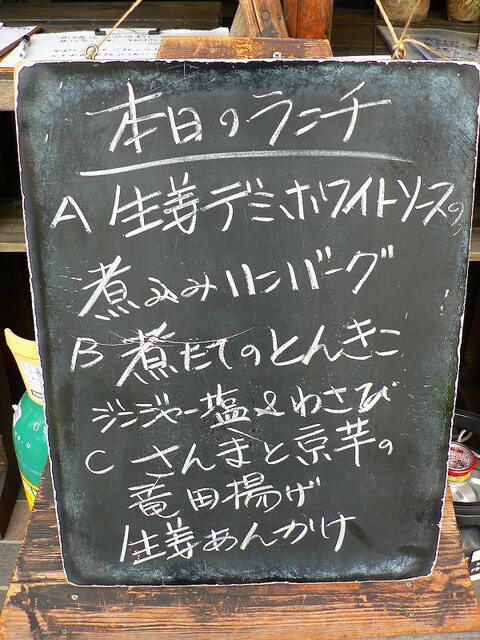 本日のランチ
A 生姜デミ、ホワイトソースの
煮込みハンバーグ
B 煮たてのとんきこ
ジンジャー塩&わさび
C さんまと京芋の
竜田揚げ
生姜あんかけ